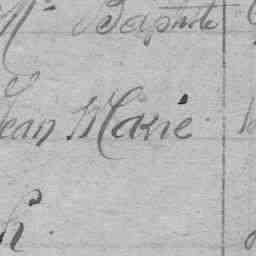 Baptiste
Jean Marie
h.